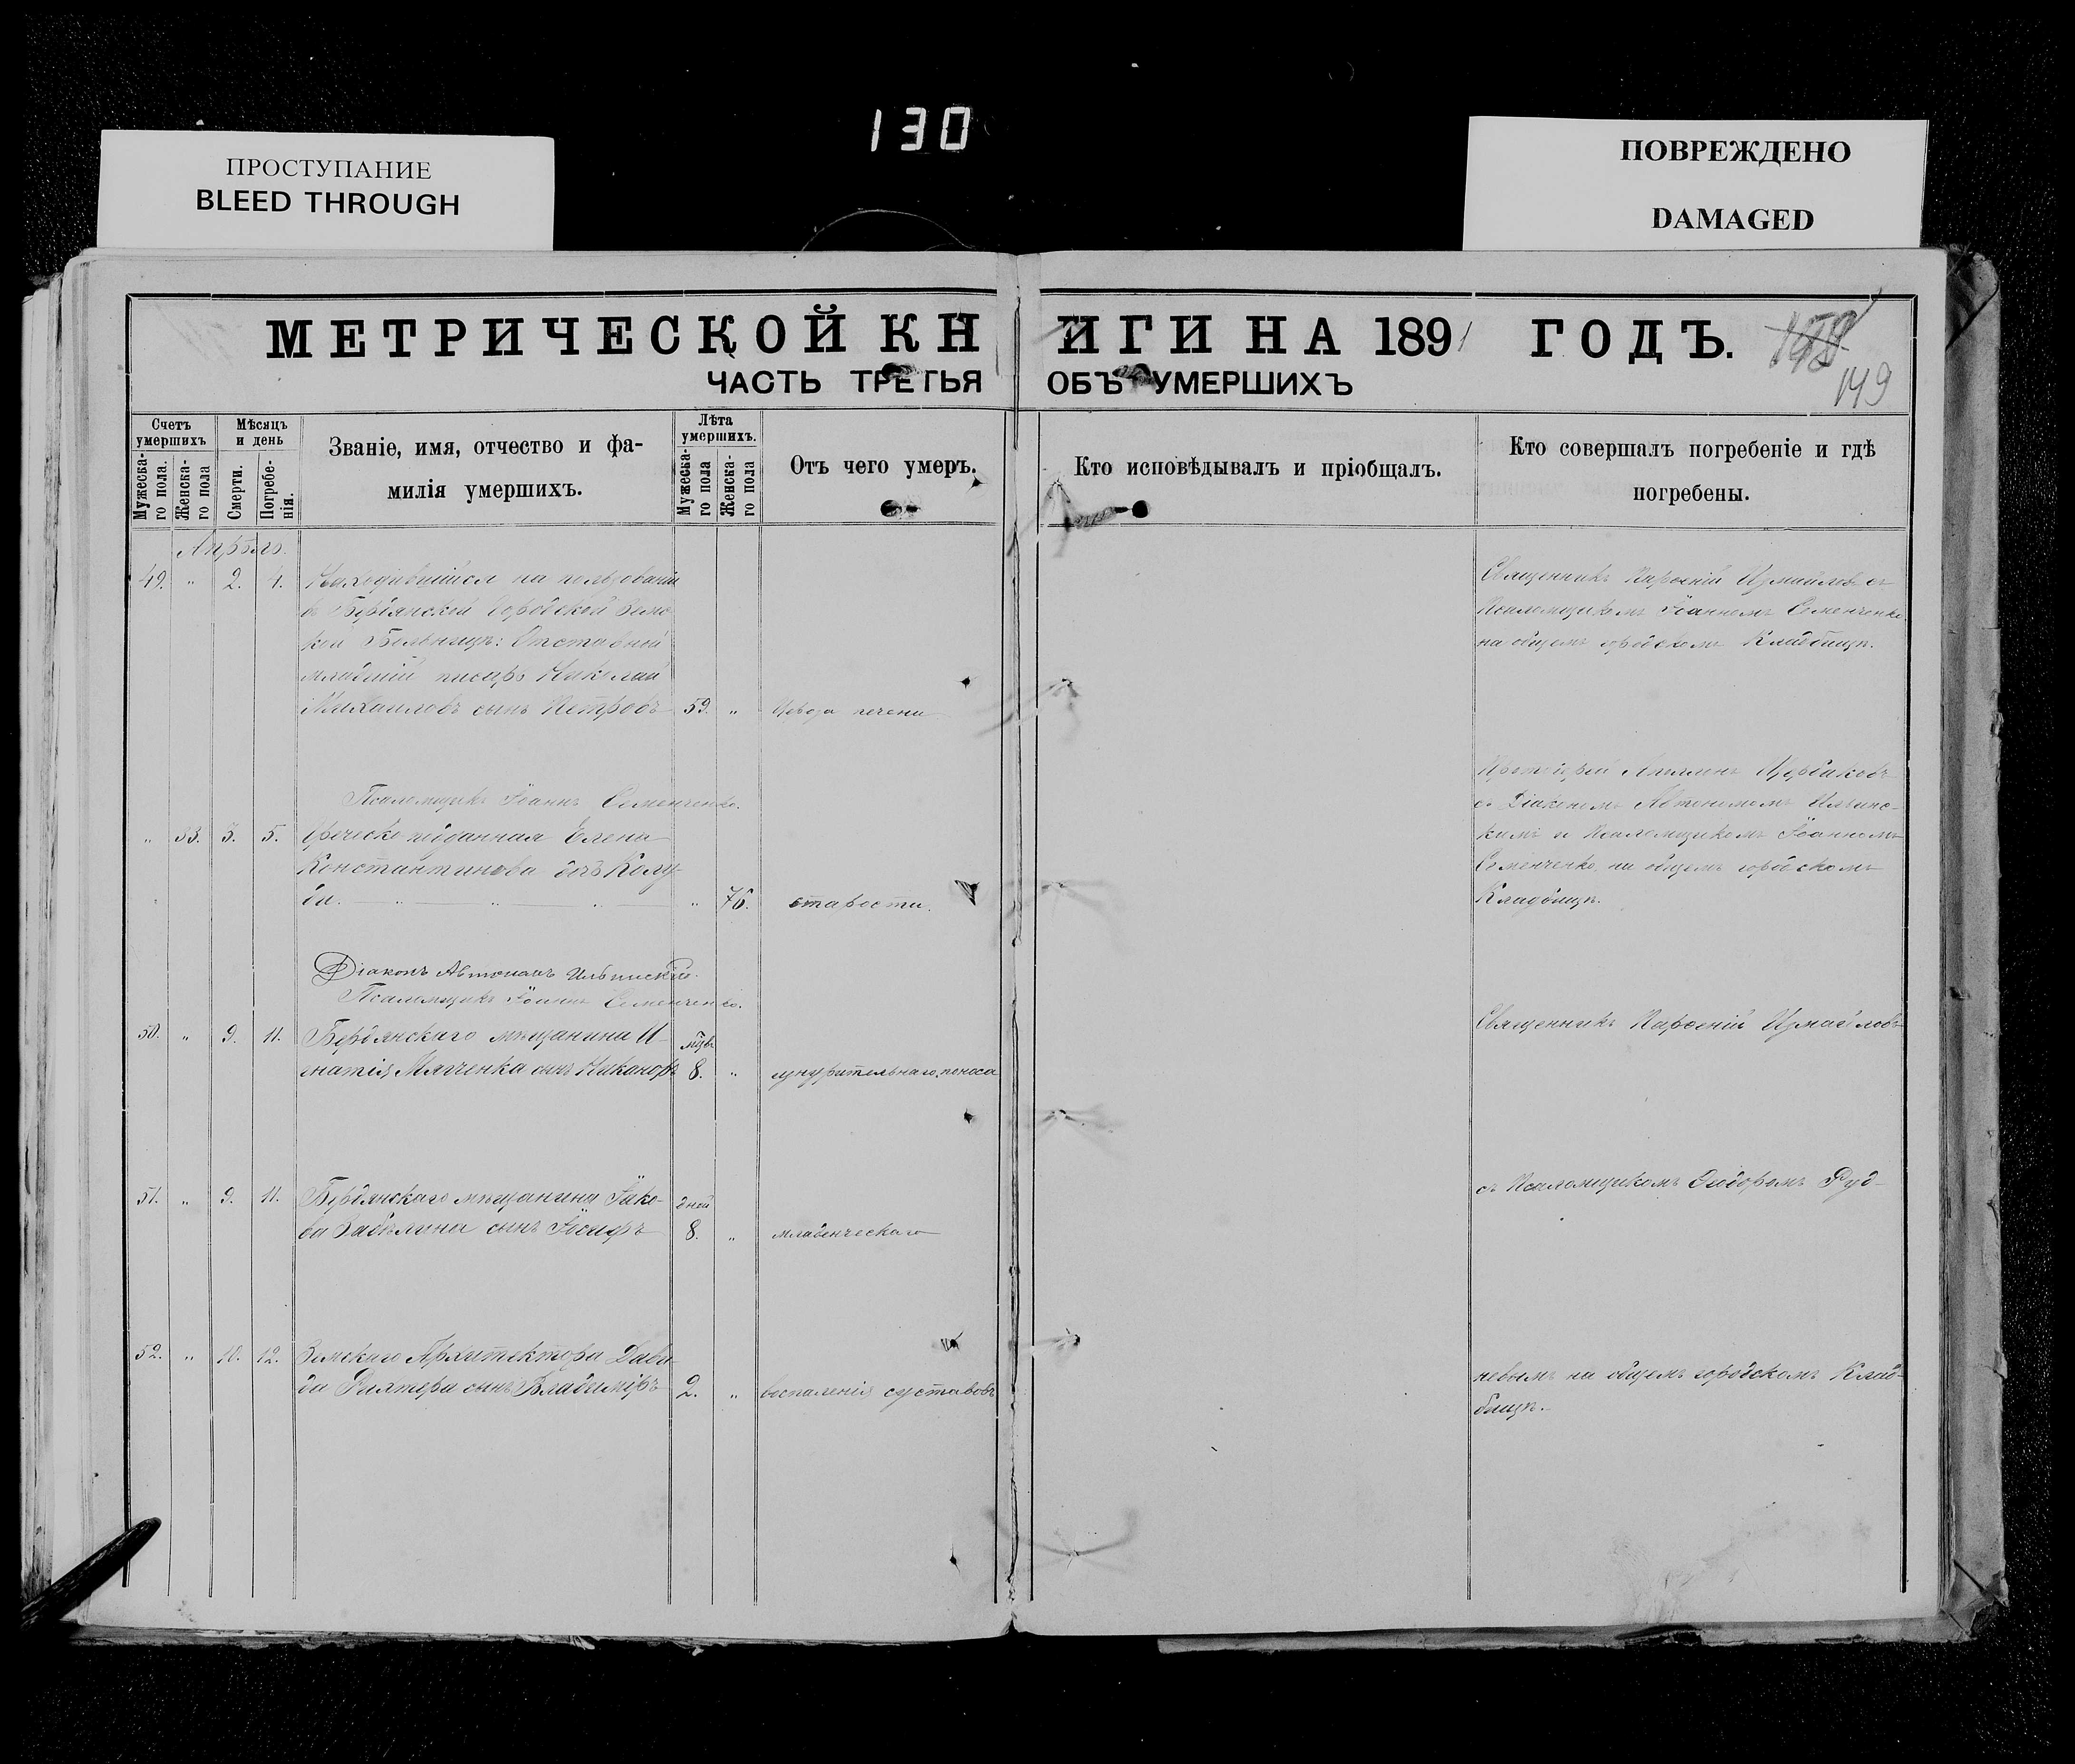 130
ПРОСТУПАНИЕ
BLEED THROUGH
ПОВРЕЖДЕНО
DAMAGED
МЕТРИЧЕСКОЙ КНИГИ НА 1891 ГОДЪ.
149
ЧАСТЬ ТРЕТЬЯ ОБЪ УМЕРШИХЪ
Счетъ умершихъ
Мужеска-го пола.
Женска-го пола
Мѣсяцъ и день
Смерти.
Погребе-нія.
Званіе, имя, отчество и фа-
милія умершихъ.
Лѣта умершихъ.
Мужеска-го пола
Женска-го пола
Отъ чего умеръ.
Кто исповѣдывалъ и пріобщалъ.
Кто совершалъ погребеніе и гдѣ
погребены.
Апрѣль.
49. " 2. 4. Находившійся на пользованіи
въ Бердянской Городской Земс-
кой Больницѣ: Отставной
младшій писарь Николай
Михаиловъ сынъ Петровъ 59. " печени
Священникъ Парѳеній Измайловъ съ
Псаломщикомъ Іоанномъ Семенченко
на общемъ городскомъ Кладбищѣ.
Псаломщикъ Іоаннъ Семенченко.
" 33. 5. 5. Греческо подданная Елена
Константинова дочь
" 76. старости.
Протоіерей
съ Діакономъ Автономомъ Ильинс-
кимъ и Псаломщикомъ Іоанномъ
Семенченко, на общемъ городскомъ
Кладбищѣ.
Діаконъ Автономъ Ильинскій.
Псаломщикъ Іоаннъ Семенченко.
50. " 9. 11. Бердянскаго мѣщанина И-
гнатія Мягченка сынъ Никаноръ мцвъ 8. " изнурительнаго поноса
Священникъ Парѳеній Измайловъ
51. " 9. 11. Бердянскаго мѣщанина Іако-
ва Забѣлина сынъ Іосифъ дней 8. " младенческаго
съ Псаломщикомъ Ѳеодоромъ Руд-
52. " 10. 12. Земскаго Архитектора Дави-
да Рихтера сынъ Владиміръ 2. " воспаленія суставовъ
невымъ на общемъ городскомъ Клад-
бищѣ.